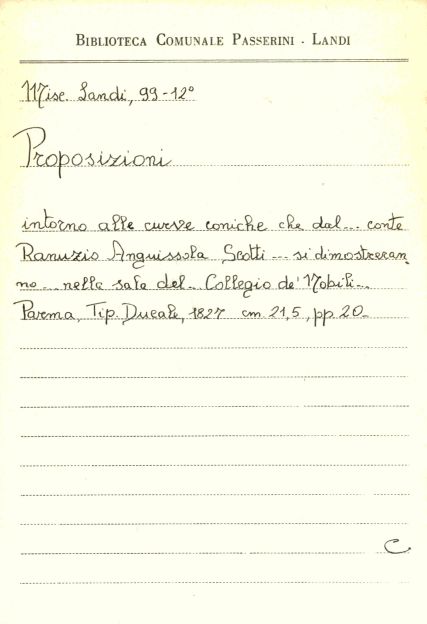 BIBLIOTECA COMUNALE PASSERINI - LANDI
Misc. Landi, 99-12°
Proposizioni
intorno alle curve coniche che dal... conte
Ranuzio Anguissola Scotti ... si dimostreran
no ... nelle sale del.. Collegio de' Nobili...
Parma, Tip. Ducale, 1827 cm 21,5, pp. 20.
C